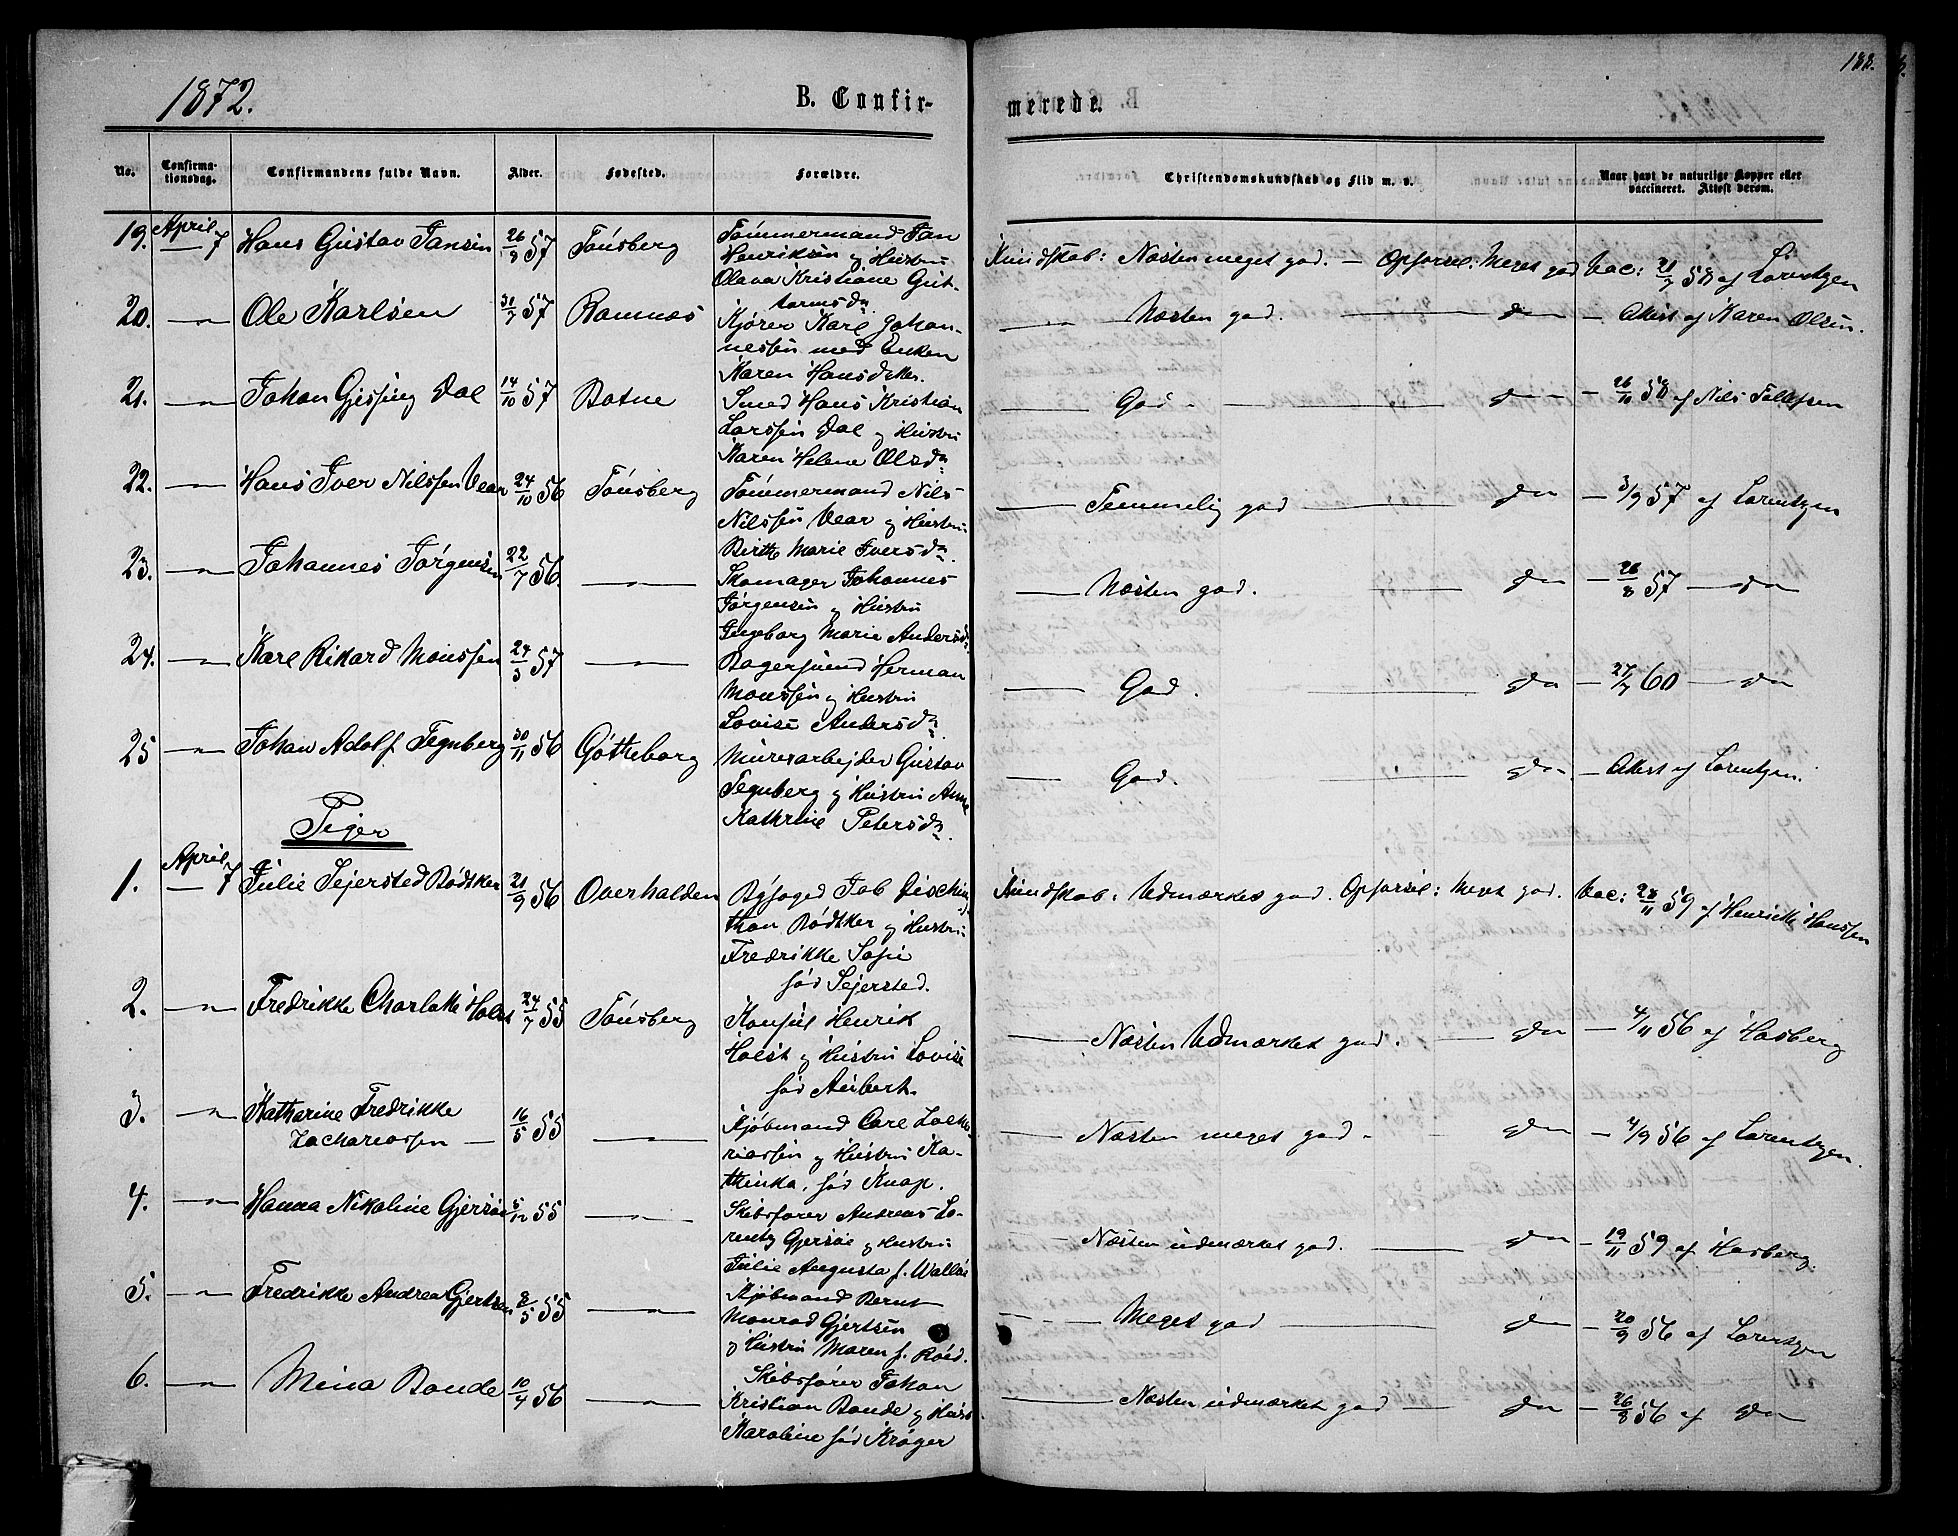 1872.
B. Confir-
merede.
188.
No.
Confirma-
tionsdag.
Confirmandens fulde Navn.
Alder.
Fødested.
Forældre.
Christendomskundskab og Flid m. v.
Naar havt de naturlige Kopper eller
vaccineret. Attest derom.
19. April 7 Hans Gustav Jansen 26/9 57 Tönsberg Tömmermand Jan
Henriksen og Hustru
Olava Kristiane Gut-
tormsd.
Kundskab: Næsten meget god. — Opførsel: Meget god Vac: 21/7 58 af Lorentzen
20. — " — Ole Karlsen 31/7 57 Ramnæs Kjører Karl Johan-
nessen med Enken
Karen Hansdtter.
— Næsten god. — do — Attest af Karen Olsen.
21. — " — Johan Gjessing Dal 14/10 57 Botne Smed Hans Kristian
Larssen Dal og Hustru
Karen Helene Olsdr
— God — do — 26/11 58 af Nils Tollefsen
22. — " — Hans Iver Nilssen Vear 24/10 56 Tönsberg Tömmermand Nils
Nilssen Vear og Hustru
Birthe Marie Iversdr
— Temmelig god — do — 3/9 57 af Lorentzen
23. — " — Johannes Jörgensen 22/7 56 — " — Skomager Johannes
Jørgensen og Hustru
Ingeborg Marie Andersdr
— Næsten god. — do — 26/8 57 — do
24. — " — Karl Rikard Monssen 24/3 57 — " — Bagersvend Herman
Monssen og Hustru
Lovise Andersdr
— God. — do — 27/7 60 — do
25 — " — Johan Adolf Tegnberg 30/11 56 Götheborg Murerarbejder Gustav
Tegnberg og Hustru Anne
Kathrine Petersdr
— God. — do — Attest af Lorentzen.
Piger
1. April 7 Julie Sejersted Bödtker 21/9 56 Overhalden Byfoged Job Dischin-
thon Bödtker og Hustru
Fredrikke Sofie
fød Sejersted.
Kundskab: Udmærket god. Opførsel: Meget god. Vac: 28/11 59 af Henrikke Hanssen
2. — " — Fredrikke Charlotte Holst 24/7 55 Tönsberg Konsul Henrik
Holst og Hustru Lovise
fød Aubert.
— Næsten Udmærket god. — do — 4/11 56 af Hasberg
3. — " — Katharine Fredrikke
Zachariassen — 16/5 55 — " — Kjöbmand Carl Zacha-
riassen og Hustru Ka-
thinka, fød Knap.
— Næsten meget god — do — 4/9 56 af Lorentzen.
4. — " — Hanna Nikoline Gjersøe 5/12 55 — " — Skibsfører Andreas Lo-
rentz Gjersøe og Hustru
Julie Augusta f. Walløe
— Næsten udmærket god. — do — 19/11 59 af Hasberg.
5. — " — Fredrikke Andrea Gjertsen 8/5 55 — " — Kjöbmand Bernt
Monrad Gjertsen
og Hustru Maren f. Röed.
— Meget god — do — 20/9 56 af Lorentzen
6. — " — Mina Bonde 10/4 56 — " — Skibsfører Johan
Kristian Bonde og Hustr
Karoline fød Kröger
— Næsten udmærket god — do — 26/8 56 af do